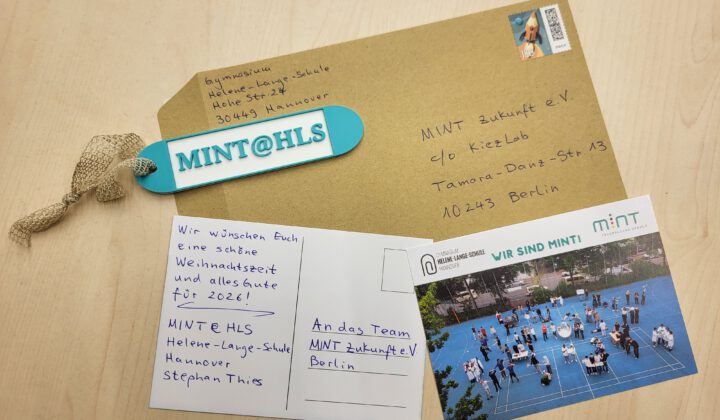 Gymnasium
Helene-Lange-Schule
Hohe Str. 24
30449 Hannover
MINT Zukunft e.V.
c/o KiezLab
Tamara-Danz-Str. 13
10243 Berlin
MINT@HLS
Wir wünschen Euch
eine schöne
Weihnachtszeit
und alles Gute
für 2026!
MINT@HLS
Helene-Lange-Schule
Hannover
Stephan Thies
An das Team
MINT Zukunft e.V
Berlin
GYMNASIUM
HELENE-LANGE-SCHULE
HANNOVER
WIR SIND MINT!
MINT